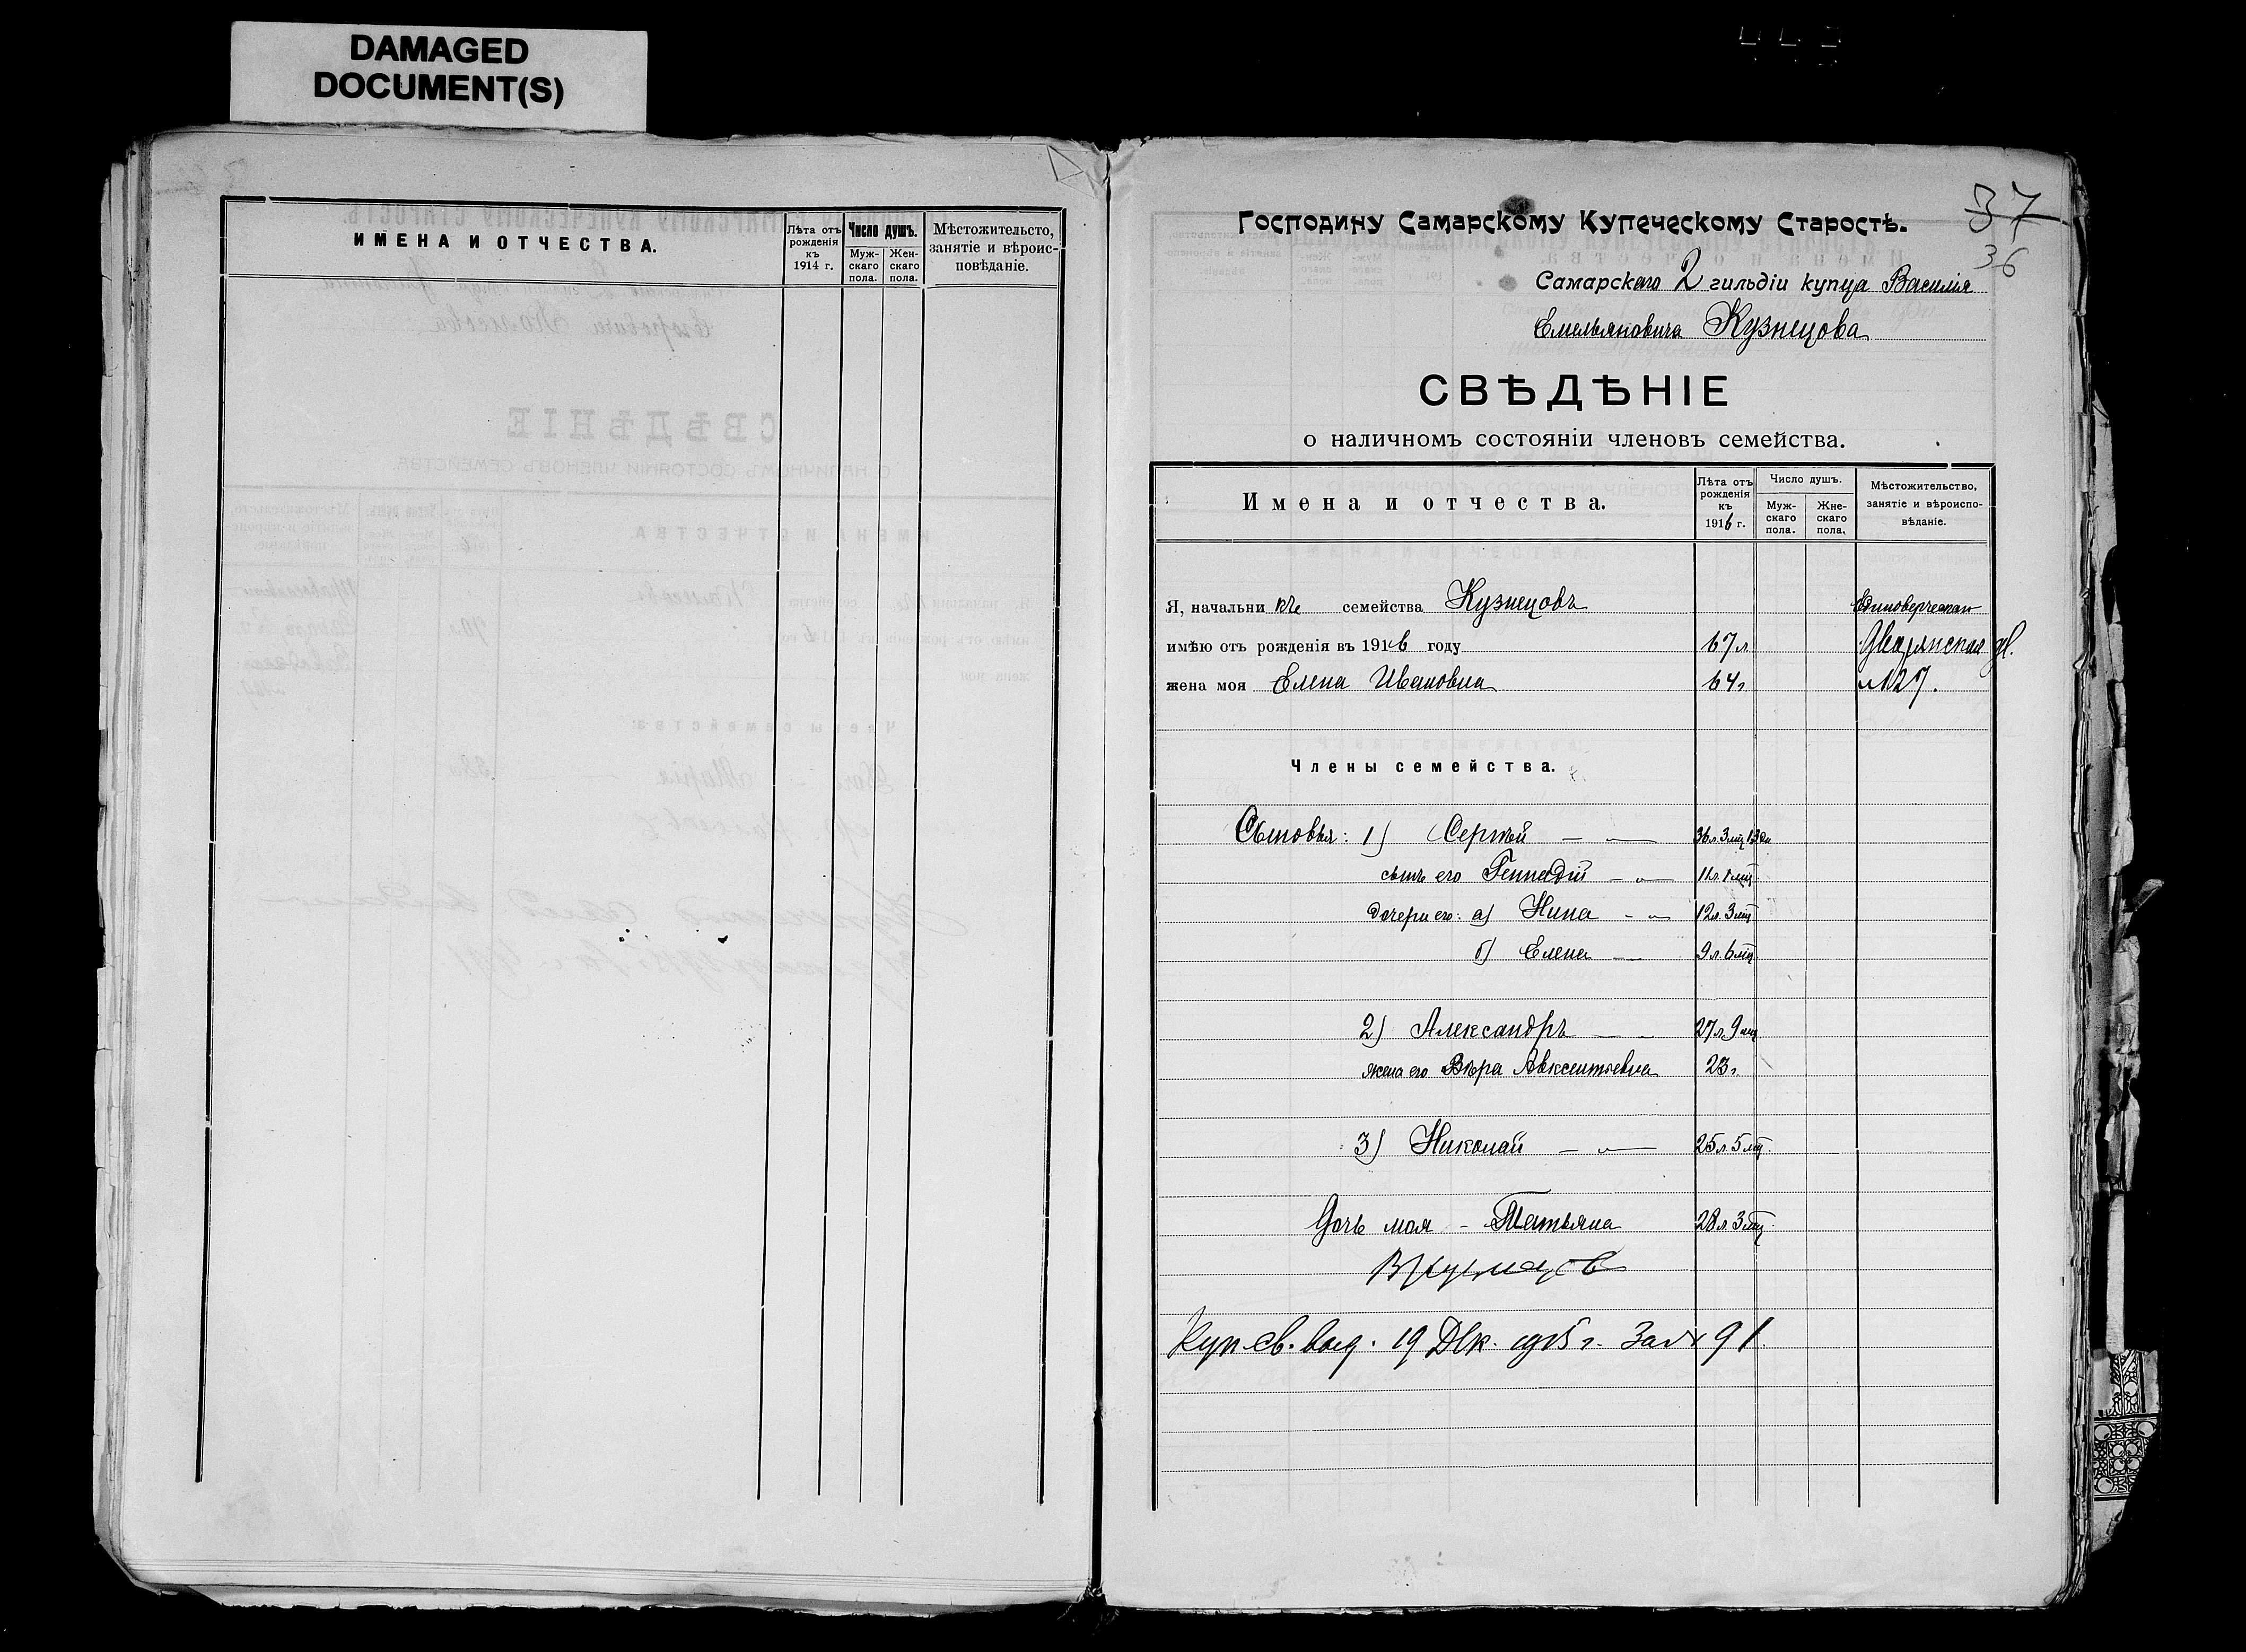 DAMAGED
DOCUMENT(S)
ИМЕНА И ОТЧЕСТВА.
Лѣта отъ рожденія къ 1914 г.
Число душъ.
Муж-скаго пола.
Жен-скаго пола.
Мѣстожительсто, занятіе и вѣроис-повѣданіе.
37
36
Господину Самарскому Купеческому Старостѣ.
Самарскаго 2 гильдіи купца Василія
Емельяновича Кузнецова
СВѢДѢНІЕ
о наличномъ состояніи членовъ семейства.
Имена и отчества.
Лѣта отъ рожденія къ 1916 г.
Число душъ.
Муж-скаго пола.
Жне-скаго пола.
Мѣстожительство, занятіе и вѣроиспо-вѣданіе.
Я, начальни къ семейства Кузнецовъ
имѣю отъ рожденія въ 1916 году 67 л Дворянская ул.
жена моя Елена Ивановна 64 г №27.
Члены семейства.
Сыновья: 1) Сергѣй — 36 л. 3 мц 13 дн
сынъ его Геннадій — 11 л. 1 мц.
дочери его: а) Нина — 12 л. 3 мц
б) Елена — 9 л. 6 мц
2) Александръ — 27 л. 9 мц
жена его Вѣра Авксентьевна 23 г.
3) Николай — 25 л 5 мц.
Дочь моя - Татьяна 28 л. 3 мц.
ВКузнецов
Куп. св. выд. 19 Дек. 1915 г. За № 91.